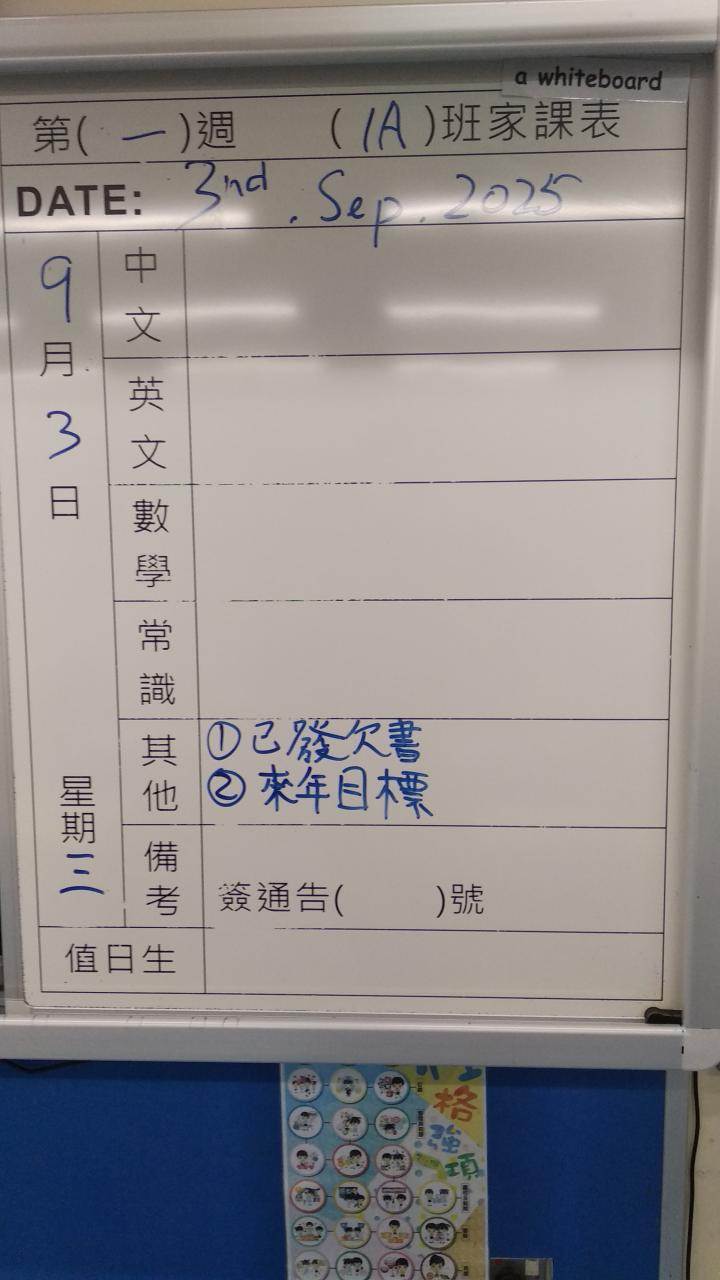 a whiteboard
第( 一 )週 ( 1A )班家課表
DATE: 3nd. Sep. 2025
9月3日
星期三
中文
英文
數學
常識
其他
①已發欠書
②來年目標
備考
簽通告( )號
值日生
性格強項